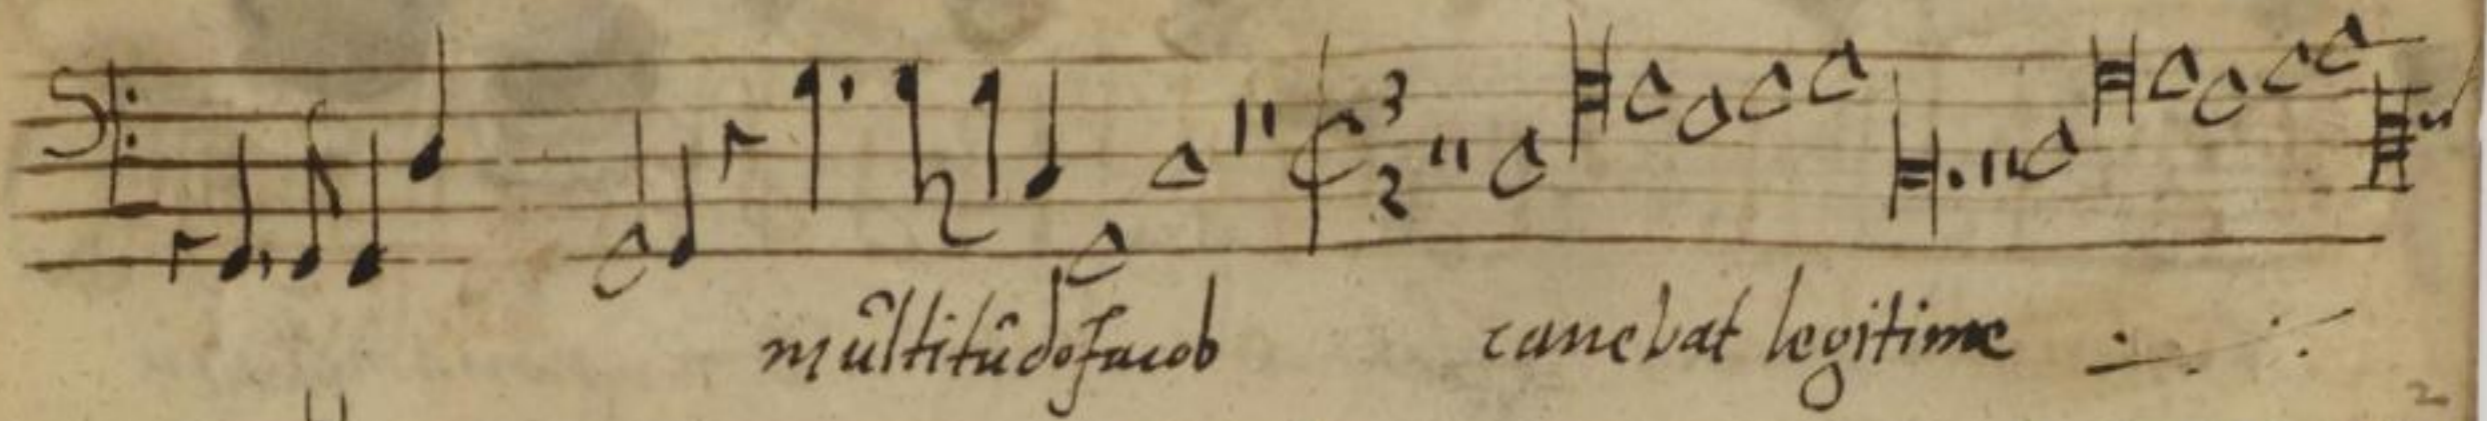 3
2
multitudo Jacob canebat legitime
2